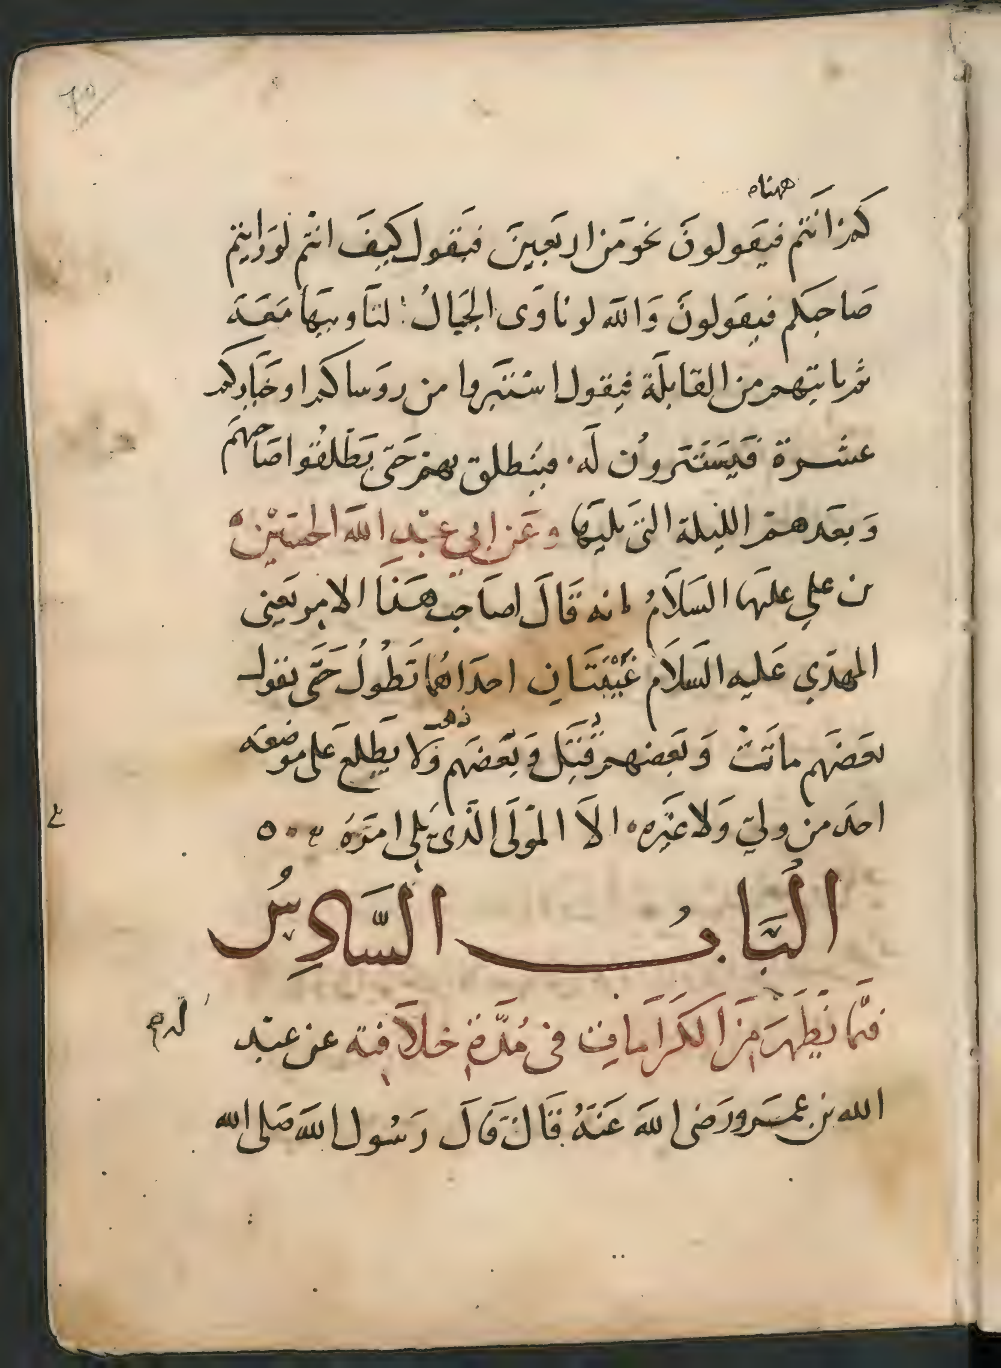 ههناه
كم انتم فيقولون نحو من اربعين فيقول كيف انتم لو رايتم
صاحبكم فيقولون والله لو ناوى الجبال لناويتها معه
ثم ياتيهم من القابلة فيقول استبروا من روساكم او خياركم
عشرة فيستبرون له فينطلق بهم حتى يطلقوا صاحبهم
وبعدهم الليلة التى يليها وعن ابي عبد الله الحسين
بن علي عليهما السلام انه قال لصاحب هذا الامر يعنى
المهدي عليه السلام غيبتان احداهما تطول حتى يقول
بعضهم مات وبعضهم قتل وبعضهم ذهب ولا يطلع على موضعه
احد من ولي ولا غيره الا المولى الذى يلى امره
الباب السادس
فيما يظهر من الكرامات فى مدة خلافته عن عبد
الله بن عمرو رضى الله عنه قال قال رسول الله صلى الله